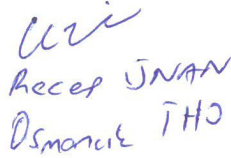 Recep İNAN
Osmancık İHO